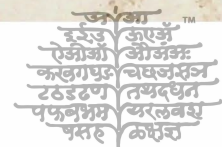 अ आ ™
इ ई उ ऊ ए ऍ
ऐ ओ ऑ औ अं अः
क ख ग घ ङ च छ ज झ ञ
ट ठ ड ढ ण त थ द ध न
प फ ब भ म य र ल व श
ष स ह ळ क्ष ज्ञ